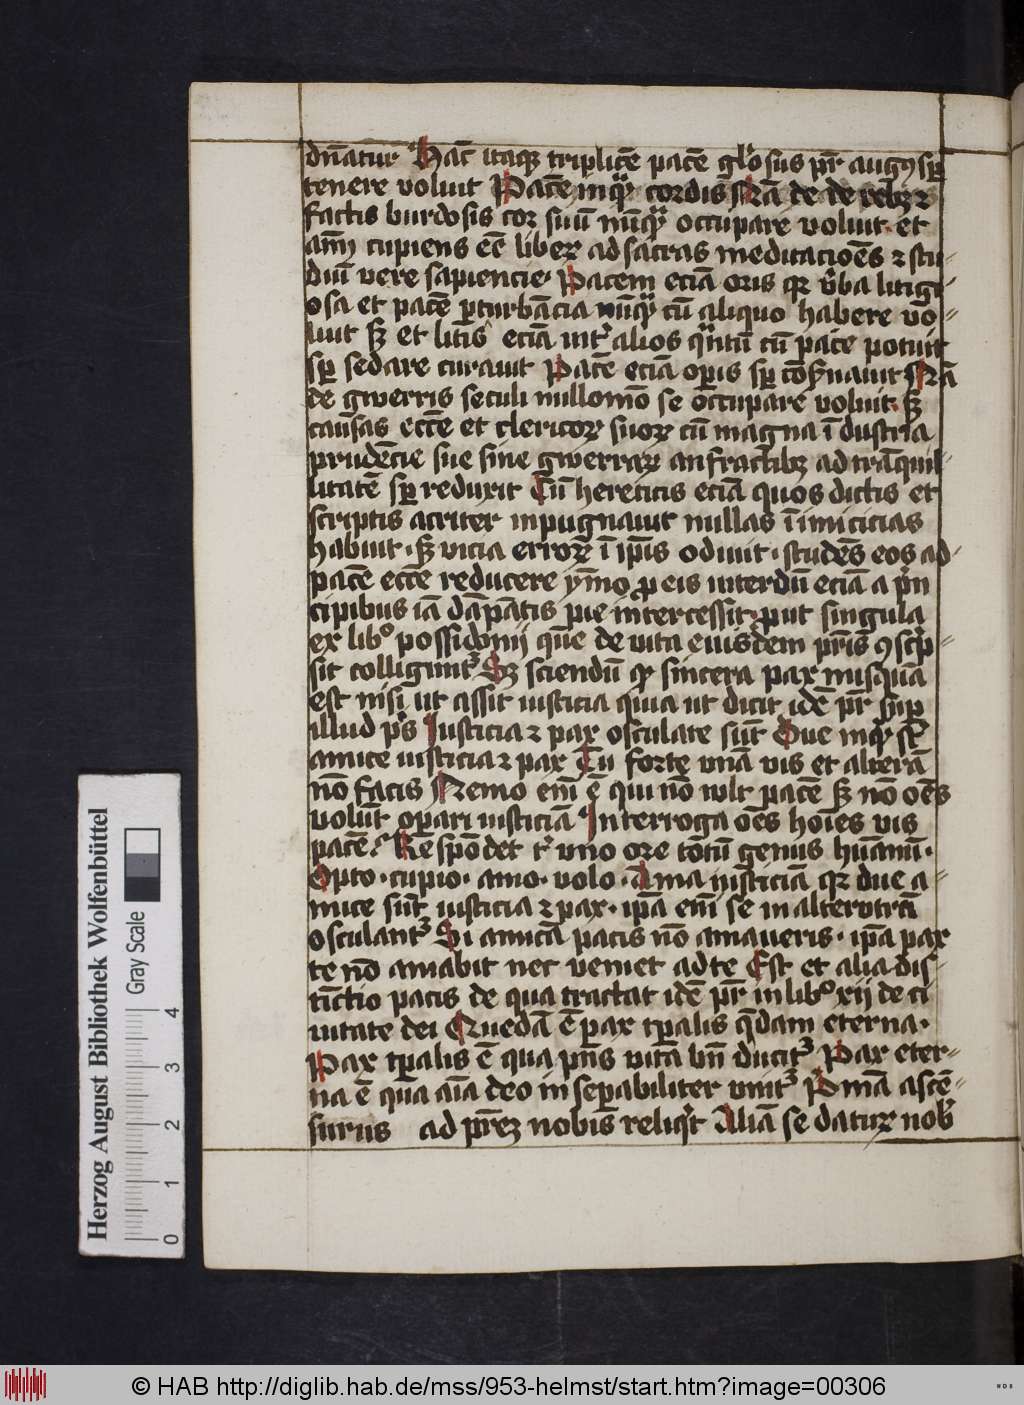 dn̄atur Hac̄ itaqꝫ triplicē pacē gl'osus pr̄ augꝰ sꝑ
tenere voluit Pacē inqͣꝫ cordis Nā de de rebꝫ ⁊
factis burdosis cor suū nūqͣꝫ occupare voluit et
cupiens eē liber ad sacras meditacioēs ⁊ stu-
diū vere sapiencie. Pacem eciā oris qꝛ v̄ba litigi-
osa et pacē ꝑturbācia nūqͣꝫ cū aliquo habere vo-
luit sꝫ et lites eciā int' alios qͣntū cū pace potuit
sꝑ sedare curauit Pacē eciā oꝑis sꝑ Nā
de gwerris seculi nullomō se occupare voluit sꝫ
causas eccē et clericoꝝ suoꝝ cū magna īdustria
prudēcie sue sine gwerraꝝ anfractibꝫ ad trāquil-
litatē sꝑ reduxit Cū hereticis eciā quos dictis et
scriptis acriter inpugnauit nullas īimicicias
habuit. sꝫ vicia erroꝝ ī ip̄is odiuit. studēs eos ad
pacē eccē reducere ymo ꝓ eis interdū eciā a p'n
cipibus iā dāpnatis pie intercessit. put singula
ex lib° possidonij que de vita eiusdem pr̄is ꝯsc'p-
sit colligunt' Sꝫ sciendū qꝫ sincera pax nusquā
est nisi ut assit iusticia quia ut dicit idē pr̄ sup
illud ps̄ Iusticia ⁊ pax osculate sūt Due inqͣꝫ st̄
amice iusticia ⁊ pax Tu forte vnā vis et alterā
nō facis Nemo eni ē qui nō wlt pacē sꝫ nō oēs
volūt oꝑari iusticiā Interroga oēs hoīes vis
pacē? Respōdet t' vno ore totū genus hūanū.
Opto. cupio. amo. volo. Ama iusticiā qꝛ due a-
mice sūt iusticia ⁊ pax. ip̄a eni se inalterutrū
osculant' Si amicā pacis nō amaueris. ip̄a pax
te nō amabit nec veniet ad te Est et alia dis-
tīctio pacis de qua tractat idē pr̄ in lib° xij de ci
uitate dei Quedā ē pax tꝑalis q̄dam eterna.
Pax tꝑalis ē qua pn̄s vita bn̄ ducit' Pax eter-
na ē qua aīa deo inseꝑabiliter vnit' P'mā ascē-
surus ad pr̄eꝫ nobis reliq't Aliā se daturꝝ nob'
Herzog August Bibliothek Wolfenbüttel
Gray Scale
0 1 2 3 4
© HAB http://diglib.hab.de/mss/953-helmst/start.htm?image=00306